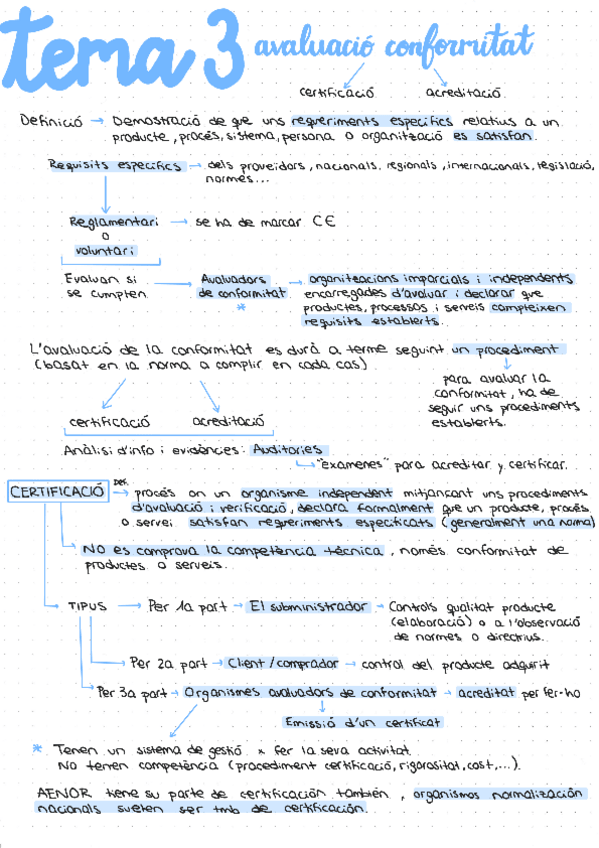 tema 3 avaluació conformitat
certificació acreditació
Definició → Demostració de que uns requeriments específics relatius a un
producte, procés, sistema, persona o organització es satisfan.
Requisits específics → dels proveidors, nacionals, regionals, internacionals, legislació,
normes...
Reglamentari → se ha de marcar CE
o
voluntari
Evaluan si → Avaluadors → organitzacions imparcials i independents
se cumplen de conformitat encarregades d'avaluar i declarar que
* productes, processos i serveis compleixen
requisits establerts.
L'avaluació de la conformitat es durà a terme seguint un procediment
(basat en la norma a complir en cada cas)
para avaluar la
conformitat, ha de
seguir uns procediments
establerts.
certificació acreditació
Anàlisi d'info i evidències: Auditories
"exámenes" para acreditar y certificar.
CERTIFICACIÓ Def. → procés on un organisme independent mitjançant uns procediments
d'avaluació i verificació, declara formalment que un producte, procés
o servei satisfan requeriments especificats (generalment una norma)
No es comprova la competència tècnica, només conformitat de
productes o serveis.
TIPUS → Per 1a part → El subministrador → Controls qualitat producte
(elaboració) o a l'observació
de normes o directrius.
Per 2a part → Client/comprador → control del producte adquirit
Per 3a part → Organismes avaluadors de conformitat → acreditat per fer-ho
Emissió d'un certificat
* Tenen un sistema de gestió x fer la seva activitat.
No tenen competència (procediment certificació, rigorositat, cost,...).
AENOR tiene su parte de certificación también, organismos normalización
nacionals suelen ser tmb de certificación.